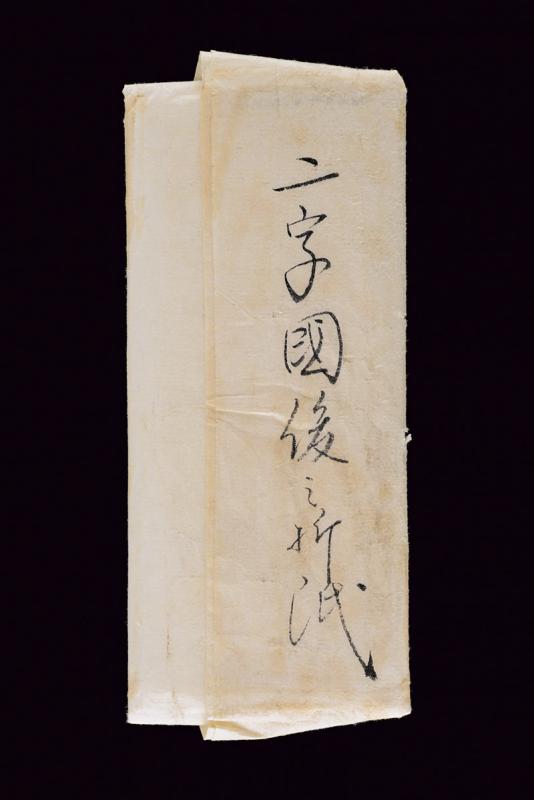 二字國俊之折紙